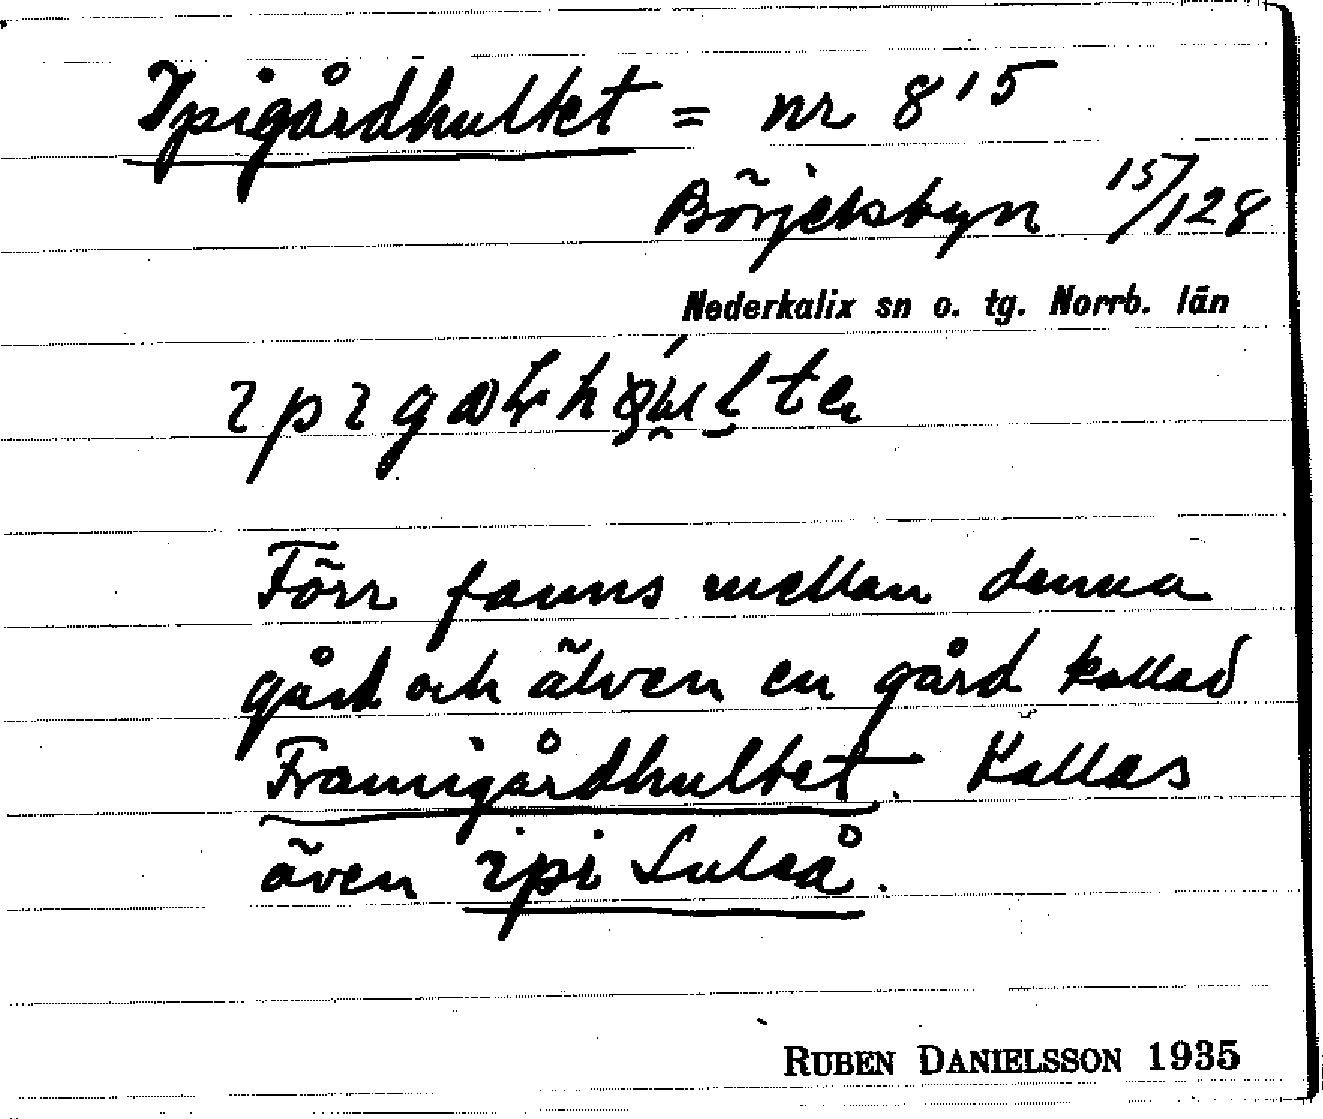 Ipigårdhultet = nr 8¹⁵
Börjelsbyn 15/128
Nederkalix sn o. tg. Norrb. län
Förr fanns mellan denna
gård och älven en gård kallad
Framigårdhultet. Kallas
även ipi Luleå.
RUBEN DANIELSSON 1935